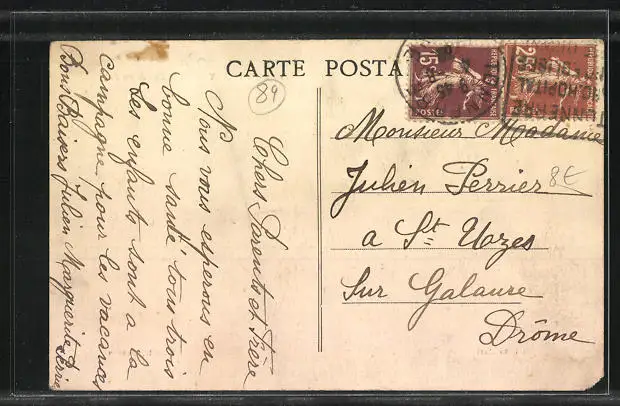 CARTE POSTA
89
15c
POSTES
Monsieur Madame
Julien Perrier
8€
a St Uzes
Sur Galaure
Drôme
Chers Parents et Frère
Nous vous esperons en
bonne santé tous trois
Les enfants sont a la
campagne pour les vacances
Bons Baisers Julien Marguerite Perrier